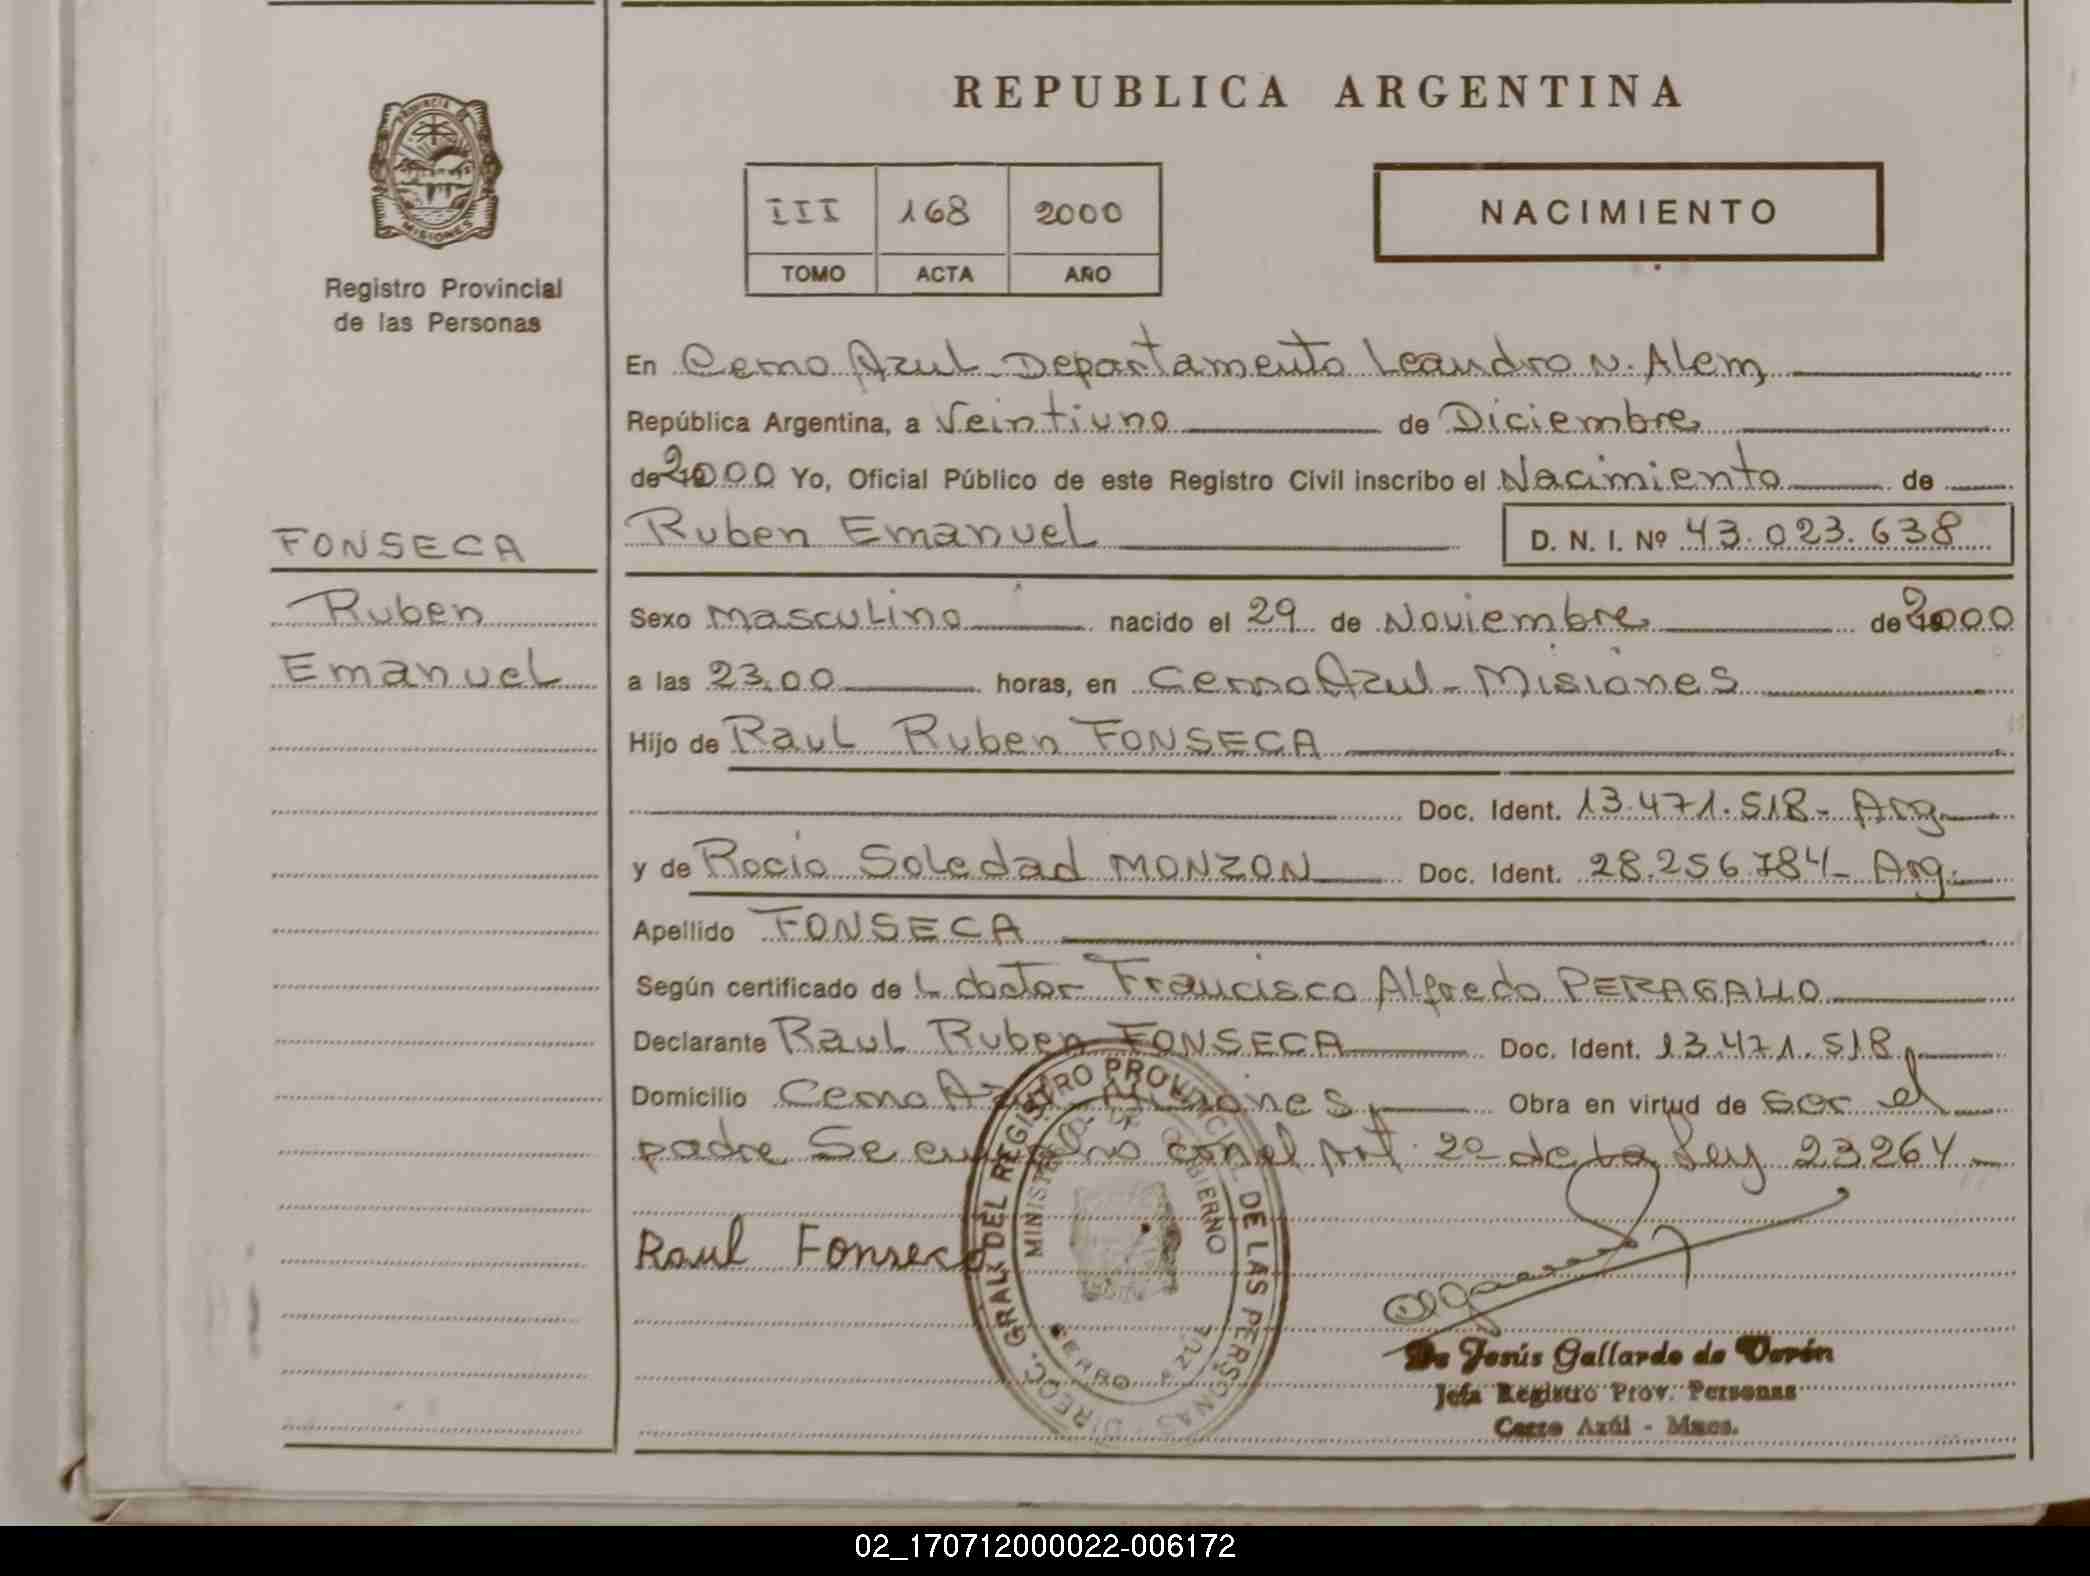 REPUBLICA ARGENTINA
PROVINCIA
MISIONES
Registro Provincial
de las Personas
III 168 2000
TOMO ACTA AÑO
NACIMIENTO
En Cerro Azul Departamento Leandro N. Alem
República Argentina, a Veintiuno de Diciembre
de 2000 Yo, Oficial Público de este Registro Civil inscribo el Nacimiento de
FONSECA
Ruben Emanuel D. N. I. Nº 43.023.638
Ruben
Emanuel
Sexo masculino nacido el 29 de Noviembre de 2000
a las 23.00 horas, en Cerro Azul - Misiones
Hijo de Raul Ruben FONSECA
Doc. Ident. 13.471.518- Arg.
y de Rocio Soledad MONZON Doc. Ident. 28.256.784- Arg.
Apellido FONSECA
Según certificado de L doctor Francisco Alfredo PERAGALLO
Declarante Raul Ruben FONSECA Doc. Ident. 13.471.518
Domicilio Cerro Azul Misiones Obra en virtud de ser el
padre Se cumplio con el Art. 2º de la Ley 23264
Raul Fonseca
DIRECC. GRAL. DEL REGISTRO PROVINCIAL DE LAS PERSONAS
MINISTERIO DE GOBIERNO
CERRO AZUL
De Jesús Gallardo de Verón
Jefa Registro Prov. Personas
Cerro Azúl - Mnes.
02_170712000022-006172